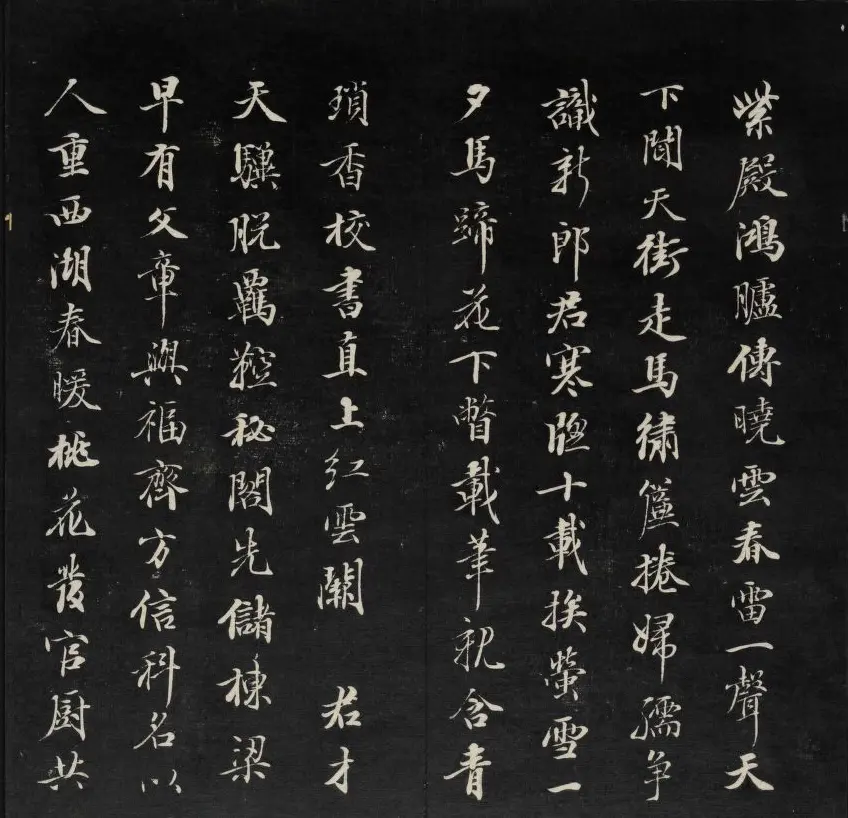 紫殿鴻臚傳曉雲春雷一聲天
下聞天街走馬繡簾捲婦孺争
識新郎君寒窗十載挨螢雪一
夕馬蹄花下瞥載筆親含青
瑣香校書直上紅雲闕 君才
天驥脱羈鞚秘閣先儲棟梁
早有文章與福齊方信科名以
人重西湖春暖桃花發官厨共